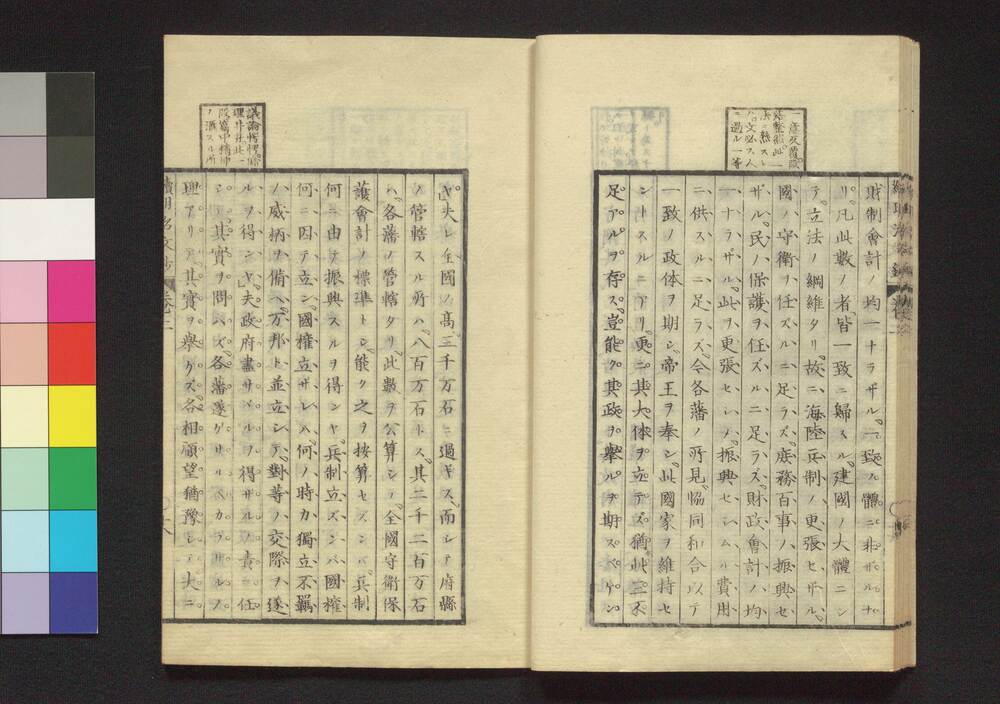 財制會計ノ均一ナラザル一致ノ體ニ非ザルナ
リ凡此數ノ者皆一致ニ歸スル建國ノ大體ニシ
テ立法ノ綱維タリ故ニ海陸兵制ノ更張セザル
國ノ守衛ヲ任ズルニ足ラズ庶務百事ノ振興セ
ザル民ノ保護ヲ任ズルニ足ラズ財政會計ノ均
一ナラザル此ヲ更張セシメ振興セシムル費用
ニ供スルニ足ラズ今各藩ノ所見協同和合以テ
一致ノ政体ヲ期シ帝王ヲ奉シ此國家ヲ維持セ
ントスルニアリ更ニ其大体ヲ立テズ猶此三不
足アルヲ存ス豈能ク其政ヲ擧ルヲ期スベケン
ヤ夫レ全國ノ高三千万石ニ過ギズ而シテ府縣
ノ管轄スル所ハ八百万石トス其二千二百万石
ハ各藩ノ管轄タリ此數ヲ公算シテ全國守衛保
護會計ノ標準トシ能ク之ヲ按算セズンバ兵制
何ニ由テ振興スルヲ得ンヤ兵制立ズンバ國權
何ニ因テ立ン國權立ザレハ何ノ時カ獨立不羈
ノ威柄ヲ備ヘ万邦ト並立シテ對等ノ交際ヲ遂
ルヲ得ンヤ夫政府盡サヾルヲ得ザルノ責ニ任
シテ其實ヲ問ハズ各藩遂ゲザルベカラザルノ
理アリテ其實ヲ擧ゲズ各相顧望猶豫シテ大ニ